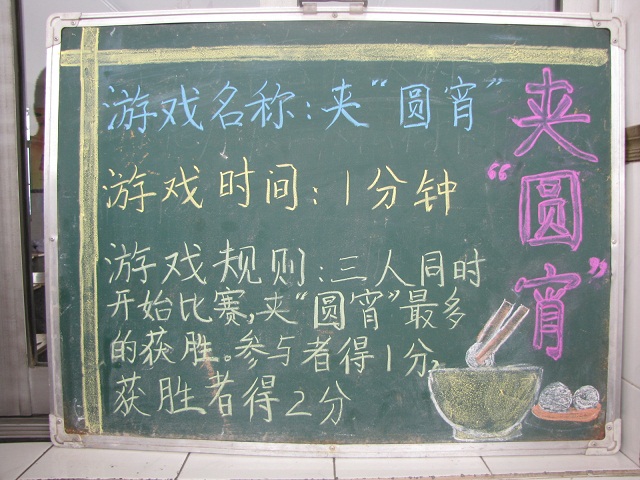 游戏名称:夹“圆宵”
游戏时间:1分钟
游戏规则:三人同时
开始比赛,夹“圆宵”最多
的获胜。参与者得1分,
获胜者得2分
夹“圆宵”